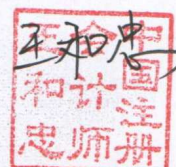 王和忠
中国注册
会计师
王和忠